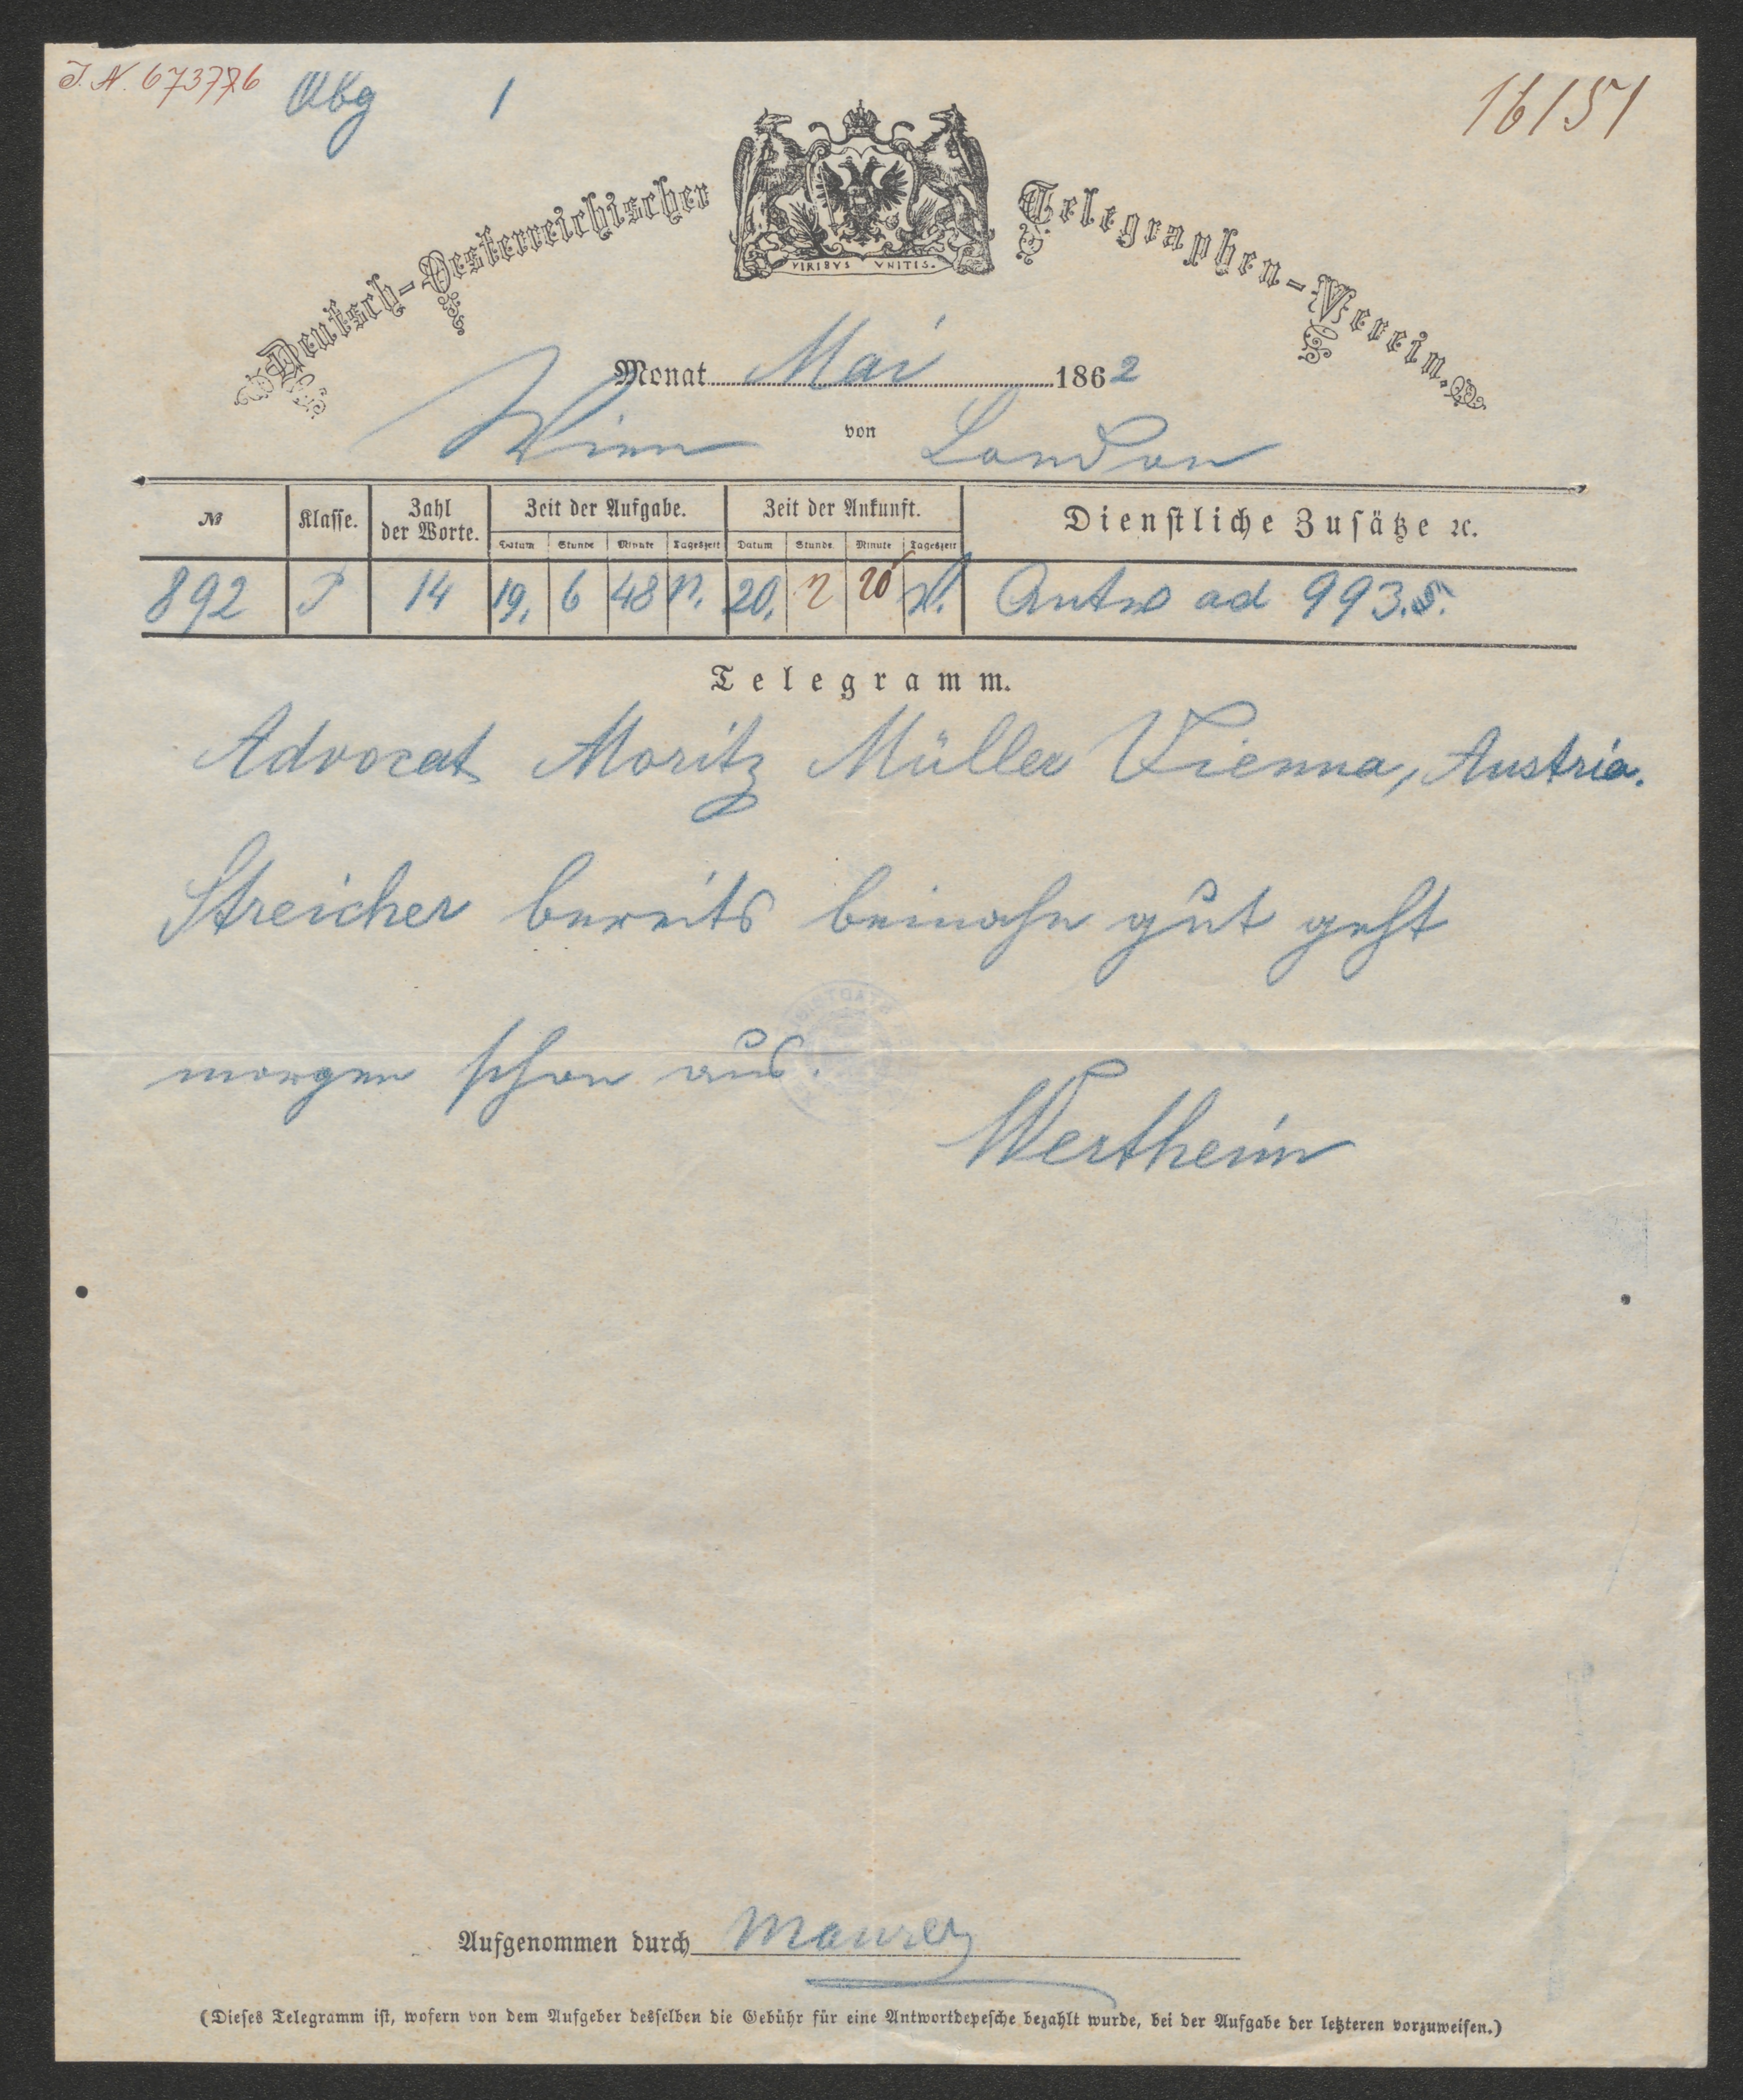 J. N. 673776
Abg 1
16151
Deutsch-Oesterreichischer Telegraphen-Verein.
VIRIBVS VNITIS.
Monat Mai 1862
Wien von London
№ Klasse. Zahl der Worte. Zeit der Aufgabe. Zeit der Ankunft. Dienstliche Zusätze ꝛc.
Datum Stunde Minute Tageszeit Datum Stunde Minute Tageszeit
892 P 14 19. 6 48 n. 20. 2 20 Antw ad 993.S.
Telegramm.
Advocat Moritz Müller Vienna, Austria.
Streicher bereits beinahe gut geht
morgen schon aus.
Wertheim
Aufgenommen durch Maurer
(Dieses Telegramm ist, wofern von dem Aufgeber desselben die Gebühr für eine Antwortdepesche bezahlt wurde, bei der Aufgabe der letzteren vorzuweisen.)